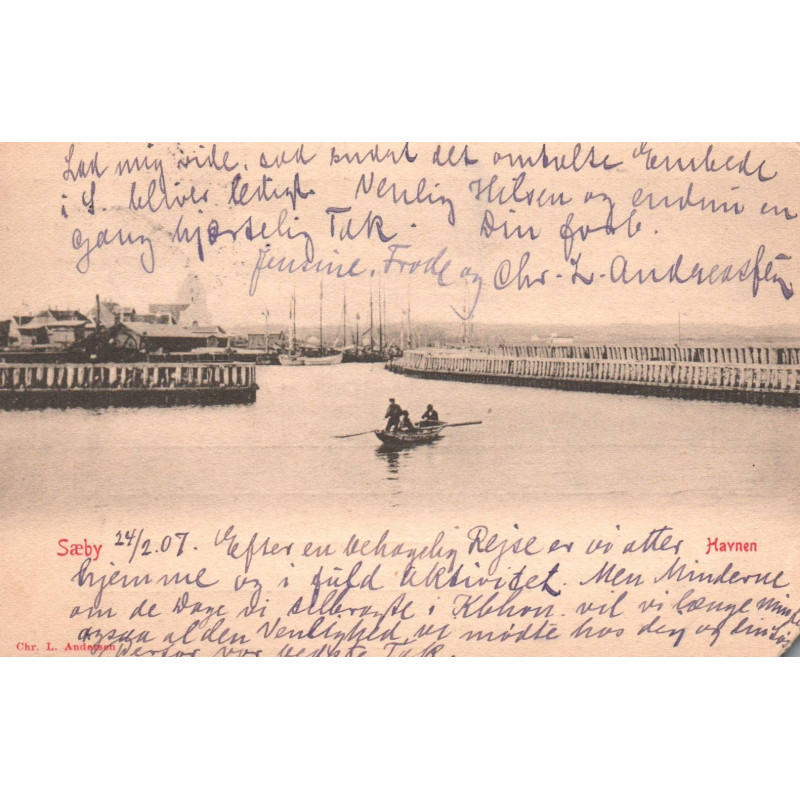 Lad mig vide, saa snart det omtalte Embede
i S. bliver ledigt. Venlig Hilsen og endnu en
Gang hjærtelig Tak. Din forb.
Jensine, Frode og Chr. L. Andreassen
Sæby 24/2.07. Efter en behagelig Rejse er vi atter Havnen
hjemme og i fuld Aktivitet. Men Minderne
om de Dage vi tilbragte i Kbhvn. vil vi længe
ogsaa al den Venlighed, vi mødte hos dig og din
Chr. L. Andersen
derfor vor bedste Tak.